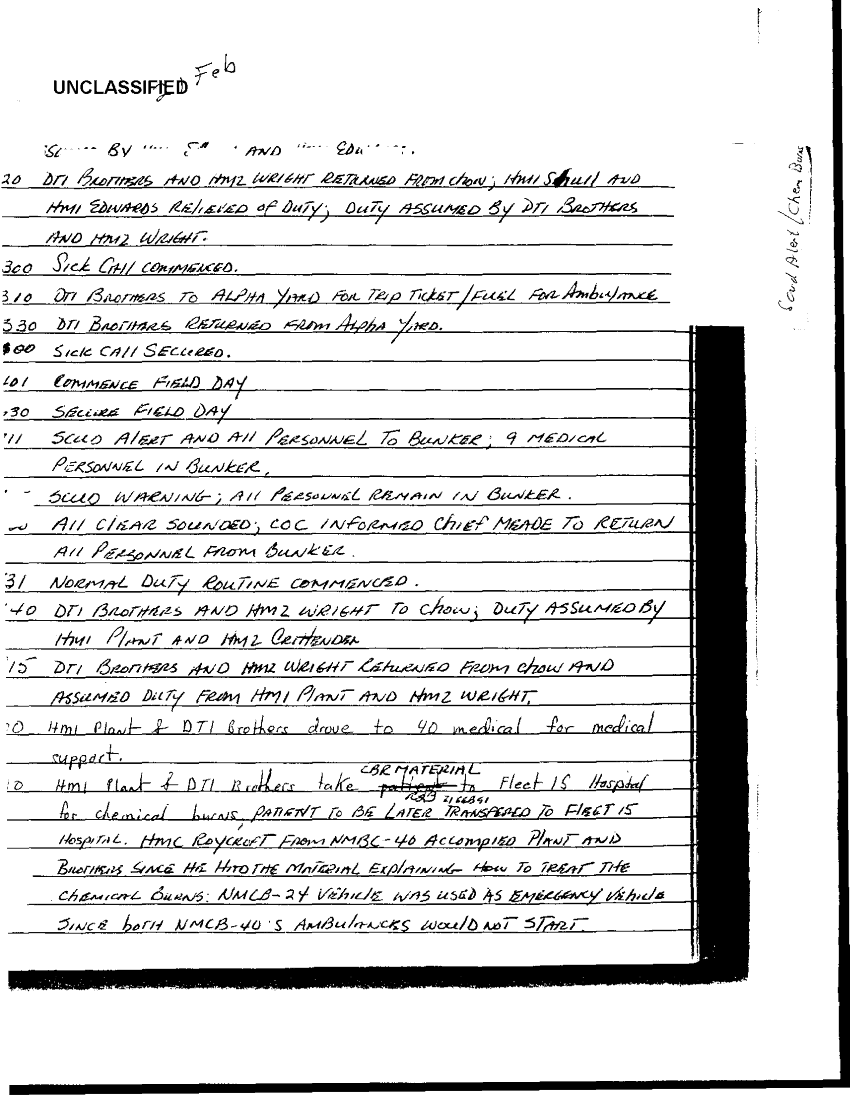 UNCLASSIFIED Feb
BY AND
20 DT1 BROTHERS AND HM2 WRIGHT RETURNED FROM CHOW; HM1 Shull AND
HM1 EDWARDS RELIEVED OF DUTY; DUTY ASSUMED BY DT1 BROTHERS
AND HM2 WRIGHT.
300 SICK CAll COMMENCED.
310 DT1 BROTHERS TO ALPHA YARD FOR TRIP TICKET/FUEL FOR AmbulANCE
330 DT1 BROTHARS RETURNED FROM AlphA YARD.
00 SICK CAll SECURED.
101 COMMENCE FIELD DAY
30 SECURE FIELD DAY
11 SCUD AlERT AND All PERSONNEL TO BUNKER; 9 MEDICAL
PERSONNEL IN BUNKER.
SCUD WARNING; All PERSONNEL REMAIN IN BUNKER.
All ClEAR SOUNDED; COC INFORMED ChIEF MEADE TO RETURN
All PERSONNEL FROM BUNKER.
31 NORMAL DUTY ROUTINE COMMENCED.
40 DT1 BROTHERS AND HM2 WRIGHT TO Chow; DUTY ASSUMED BY
HM1 PlANT AND HM2 CRITTENDEN
15 DT1 BROTHERS AND HM2 WRIGHT RETURNED FROM ChOW AND
ASSUMED DUTY FROM HM1 PlANT AND HM2 WRIGHT.
0 HM1 Plant & DT1 Brothers drove to 40 medical for medical
support.
CBR MATERIAL
0 Hm1 Plant & DT1 Brothers take patient to Fleet 15 Hospital
for chemical burns, PATIENT TO BE LATER TRANSFERED TO FlEET 15
HOSPITAL. HMC ROYCROFT FROM NMBC-40 ACCOMPIED PLANT AND
BROTHERS SINCE HE HAD THE MATERIAL EXPlAINING HOW TO TREAT THE
CHEMICAL BURNS: NMCB-24 VEhICLE WAS USED AS EMERGENCY VEhIClE
SINCE bOTH NMCB-40'S AMBUlANCES WOUlD NOT START.
Scud Alert/Chem Burn